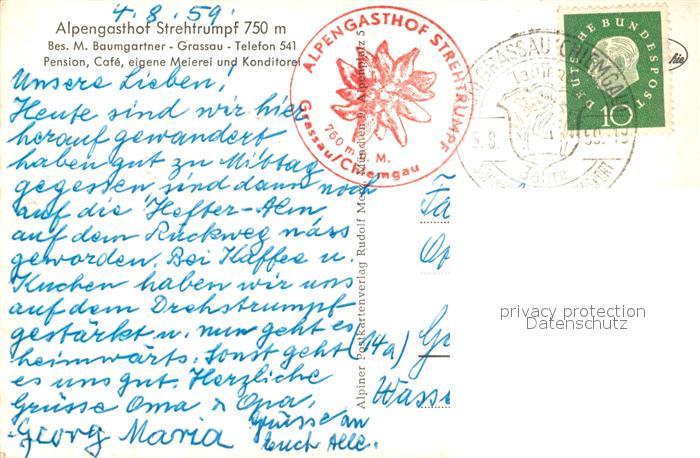 4.8.59.
Alpengasthof Strehtrumpf 750 m
Bes. M. Baumgartner - Grassau - Telefon 541
Pension, Café, eigene Meierei und Konditorei
Unsere Lieben!
Heute sind wir hier
herauf gewandert
haben gut zu Mittag
gegessen, sind dann noch
auf die Hefter-Alm,
auf dem Rückweg nass
geworden. Bei Kaffee u.
Kuchen haben wir uns
auf dem Drehstrumpf
gestärkt u. nun geht es
heimwärts. Sonst geht
es uns gut. Herzliche
Grüsse Oma & Opa,
Georg Maria
Grüsse an
Euch Alle.
ALPENGASTHOF STREHTRUMPF
750 m ü. M.
Gassau/Chiemgau
Alpiner Postkartenverlag Rudolf
München 9, Alpenplatz 5
DEUTSCHE BUNDESPOST
10
GRASSAU CHIEMGAU
5.8.
59.-19
Jahre
(14a)
Wasse
privacy protection
Datenschutz